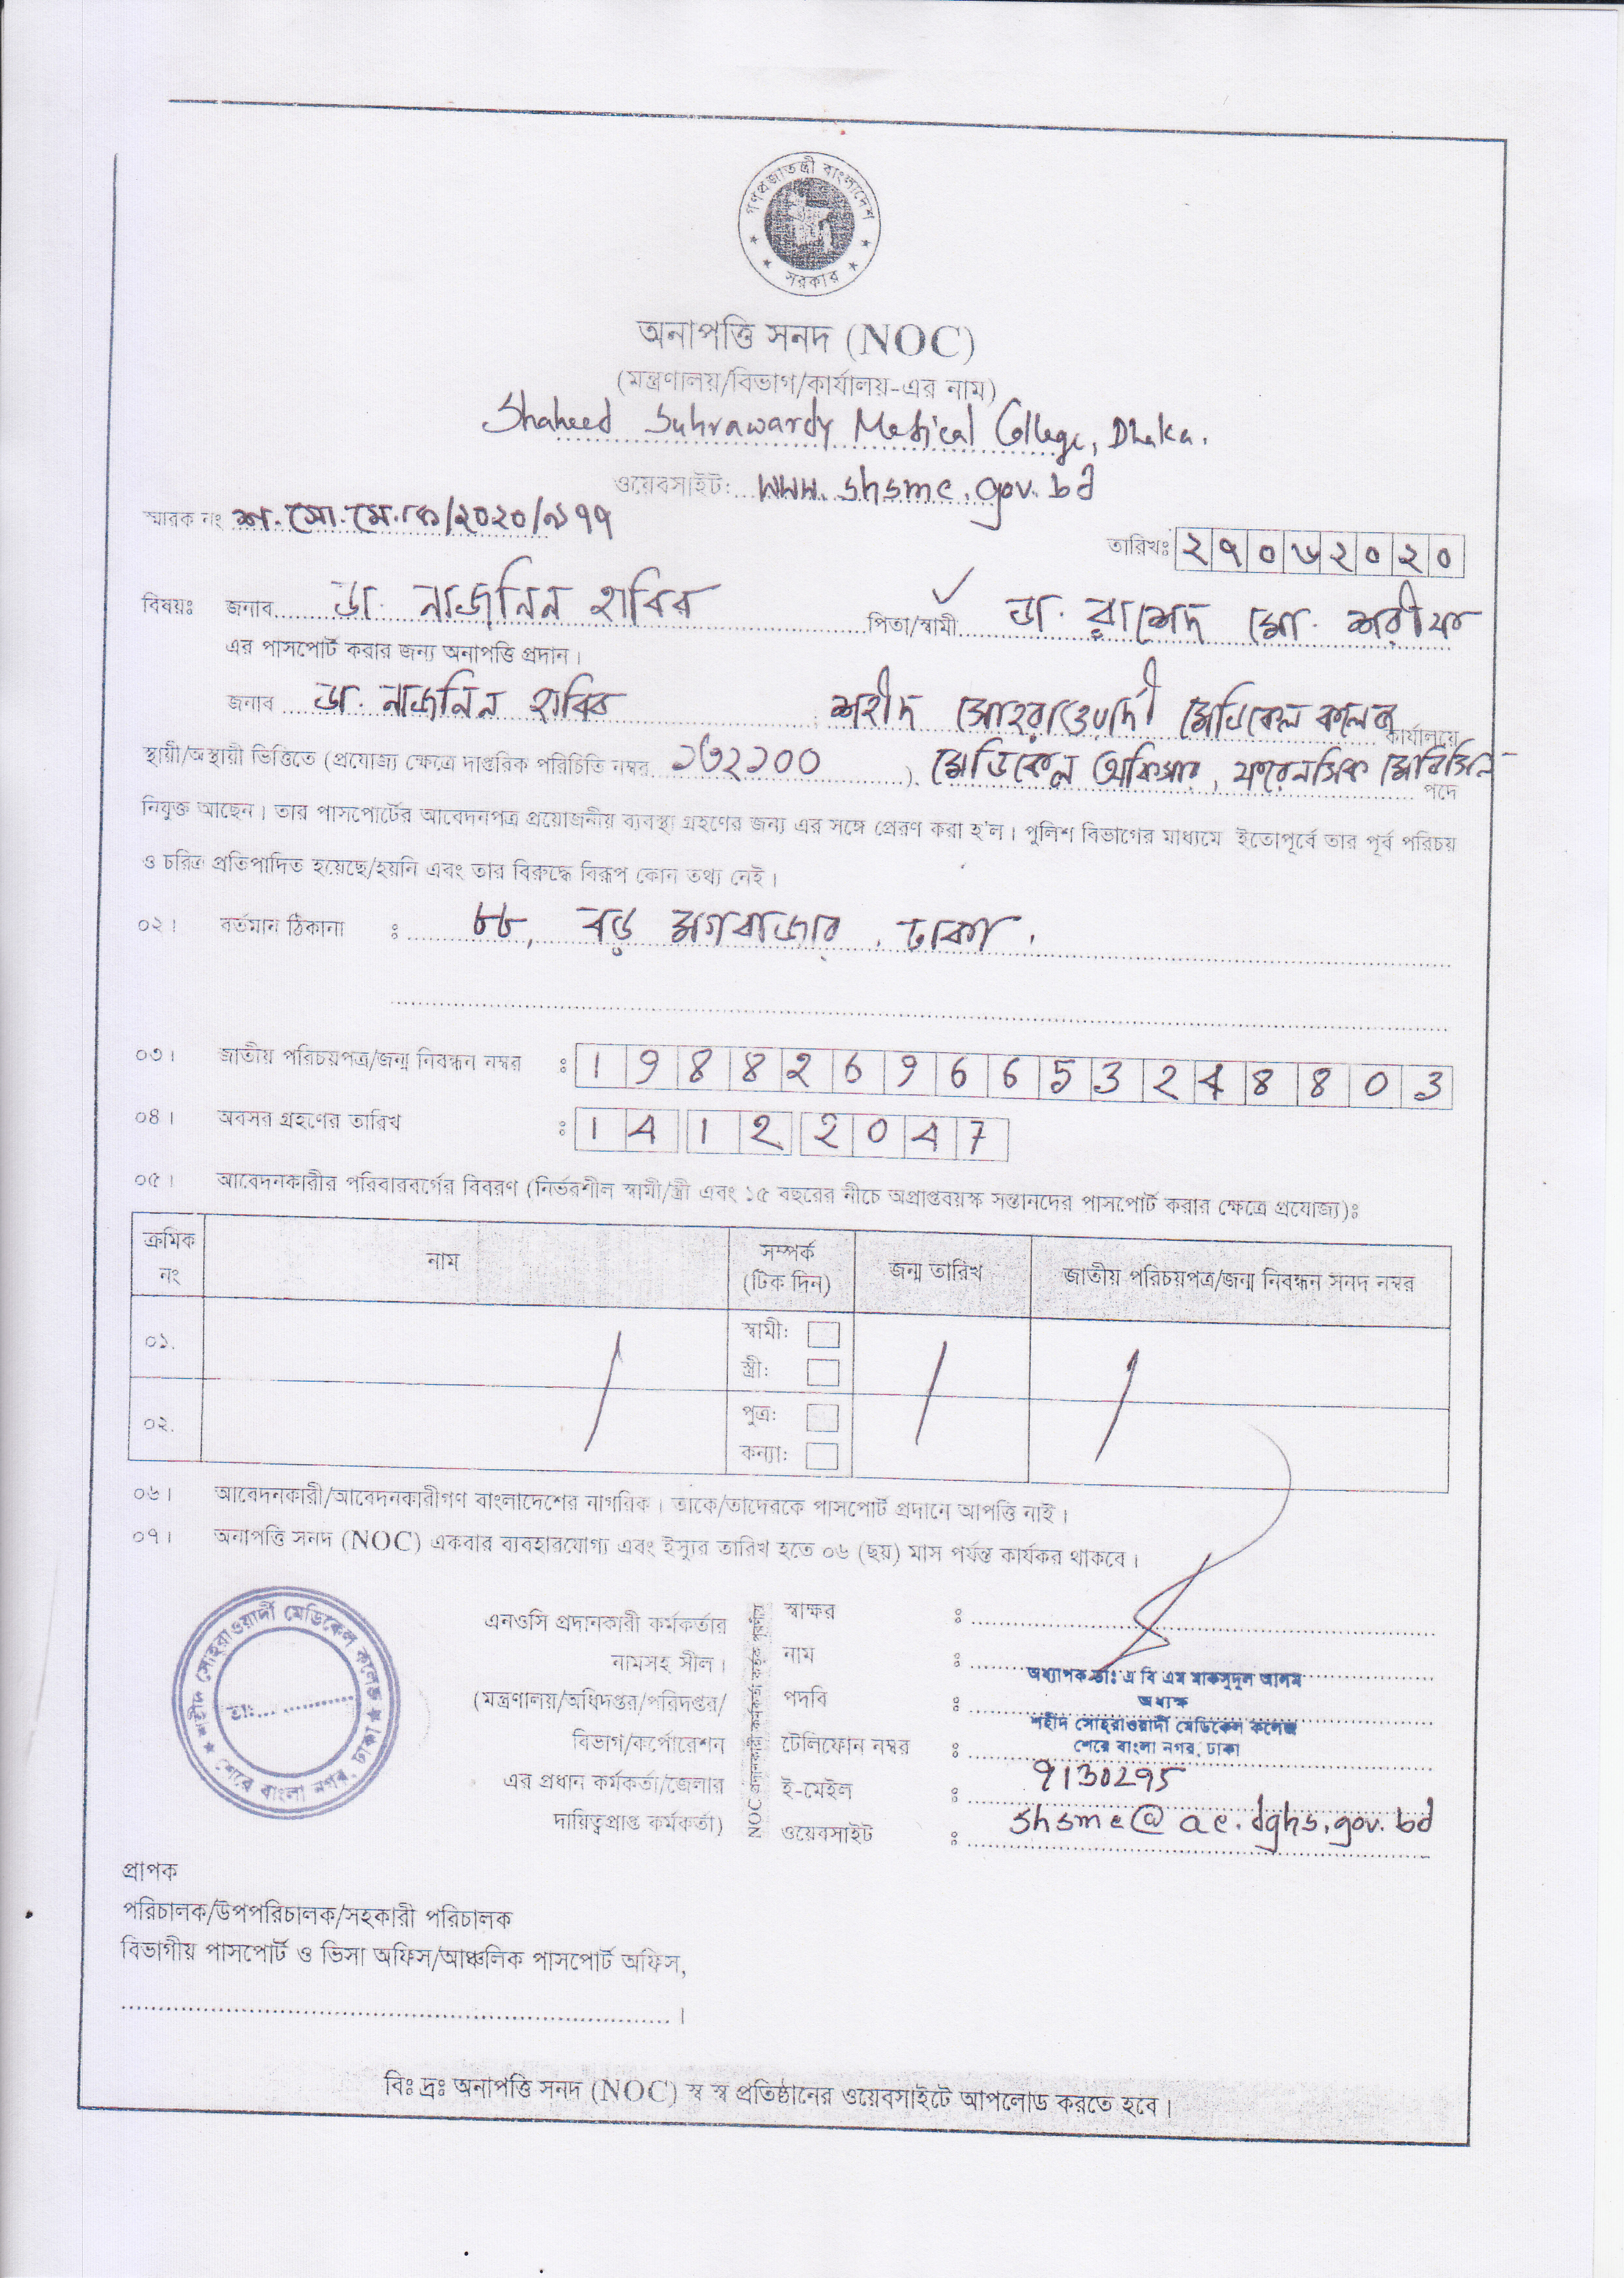 গণপ্রজাতন্ত্রী বাংলাদেশ
সরকার
অনাপত্তি সনদ (NOC)
(মন্ত্রণালয়/বিভাগ/কার্যালয়-এর নাম)
Shaheed Suhrawardy Medical College, Dhaka.
ওয়েবসাইট: www.shsmc.gov.bd
স্মারক নং শ.সো.মে.ক/২০২০/৯৭৭
তারিখঃ ২৭০৬২০২০
বিষয়ঃ জনাব ডা. নাজনিন হাবিব পিতা/স্বামী ডা. রাশেদ মো. শরীফ
এর পাসপোর্ট করার জন্য অনাপত্তি প্রদান।
জনাব ডা. নাজনিন হাবিব, শহীদ সোহরাওয়ার্দী মেডিকেল কলেজ কার্যালয়ে
স্থায়ী/অস্থায়ী ভিত্তিতে (প্রযোজ্য ক্ষেত্রে দাপ্তরিক পরিচিতি নম্বর ১৩২১০০). মেডিকেল অফিসার, ফরেনসিক মেডিসিন পদে
নিযুক্ত আছেন। তার পাসপোর্টের আবেদনপত্র প্রয়োজনীয় ব্যবস্থা গ্রহণের জন্য এর সঙ্গে প্রেরণ করা হ'ল। পুলিশ বিভাগের মাধ্যমে ইতোপূর্বে তার পূর্ব পরিচয়
ও চরিত্র প্রতিপাদিত হয়েছে/হয়নি এবং তার বিরুদ্ধে বিরূপ কোন তথ্য নেই।
০২। বর্তমান ঠিকানা : ৮৮, বড় মগবাজার, ঢাকা.
০৩। জাতীয় পরিচয়পত্র/জন্ম নিবন্ধন নম্বর : 19882696653248803
০৪। অবসর গ্রহণের তারিখ : 14122047
০৫। আবেদনকারীর পরিবারবর্গের বিবরণ (নির্ভরশীল স্বামী/স্ত্রী এবং ১৫ বছরের নীচে অপ্রাপ্তবয়স্ক সন্তানদের পাসপোর্ট করার ক্ষেত্রে প্রযোজ্য)ঃ
ক্রমিক নং নাম সম্পর্ক (টিক দিন) জন্ম তারিখ জাতীয় পরিচয়পত্র/জন্ম নিবন্ধন সনদ নম্বর
০১. স্বামী:
স্ত্রী:
০২. পুত্র:
কন্যা:
০৬। আবেদনকারী/আবেদনকারীগণ বাংলাদেশের নাগরিক। তাকে/তাদেরকে পাসপোর্ট প্রদানে আপত্তি নাই।
০৭। অনাপত্তি সনদ (NOC) একবার ব্যবহারযোগ্য এবং ইস্যুর তারিখ হতে ০৬ (ছয়) মাস পর্যন্ত কার্যকর থাকবে।
শহীদ সোহরাওয়ার্দী মেডিকেল কলেজ
তাং
শেরে বাংলা নগর, ঢাকা
এনওসি প্রদানকারী কর্মকর্তার
নামসহ সীল।
(মন্ত্রণালয়/অধিদপ্তর/পরিদপ্তর/
বিভাগ/কর্পোরেশন
এর প্রধান কর্মকর্তা/জেলার
দায়িত্বপ্রাপ্ত কর্মকর্তা)
স্বাক্ষর :
নাম : অধ্যাপক ডাঃ এ বি এম মাকসুদুল আলম
পদবি : অধ্যক্ষ
শহীদ সোহরাওয়ার্দী মেডিকেল কলেজ
শেরে বাংলা নগর, ঢাকা
টেলিফোন নম্বর : 9130295
ই-মেইল : shsmc@ac.dghs.gov.bd
ওয়েবসাইট :
প্রাপক
পরিচালক/উপপরিচালক/সহকারী পরিচালক
বিভাগীয় পাসপোর্ট ও ভিসা অফিস/আঞ্চলিক পাসপোর্ট অফিস,
বিঃ দ্রঃ অনাপত্তি সনদ (NOC) স্ব স্ব প্রতিষ্ঠানের ওয়েবসাইটে আপলোড করতে হবে।